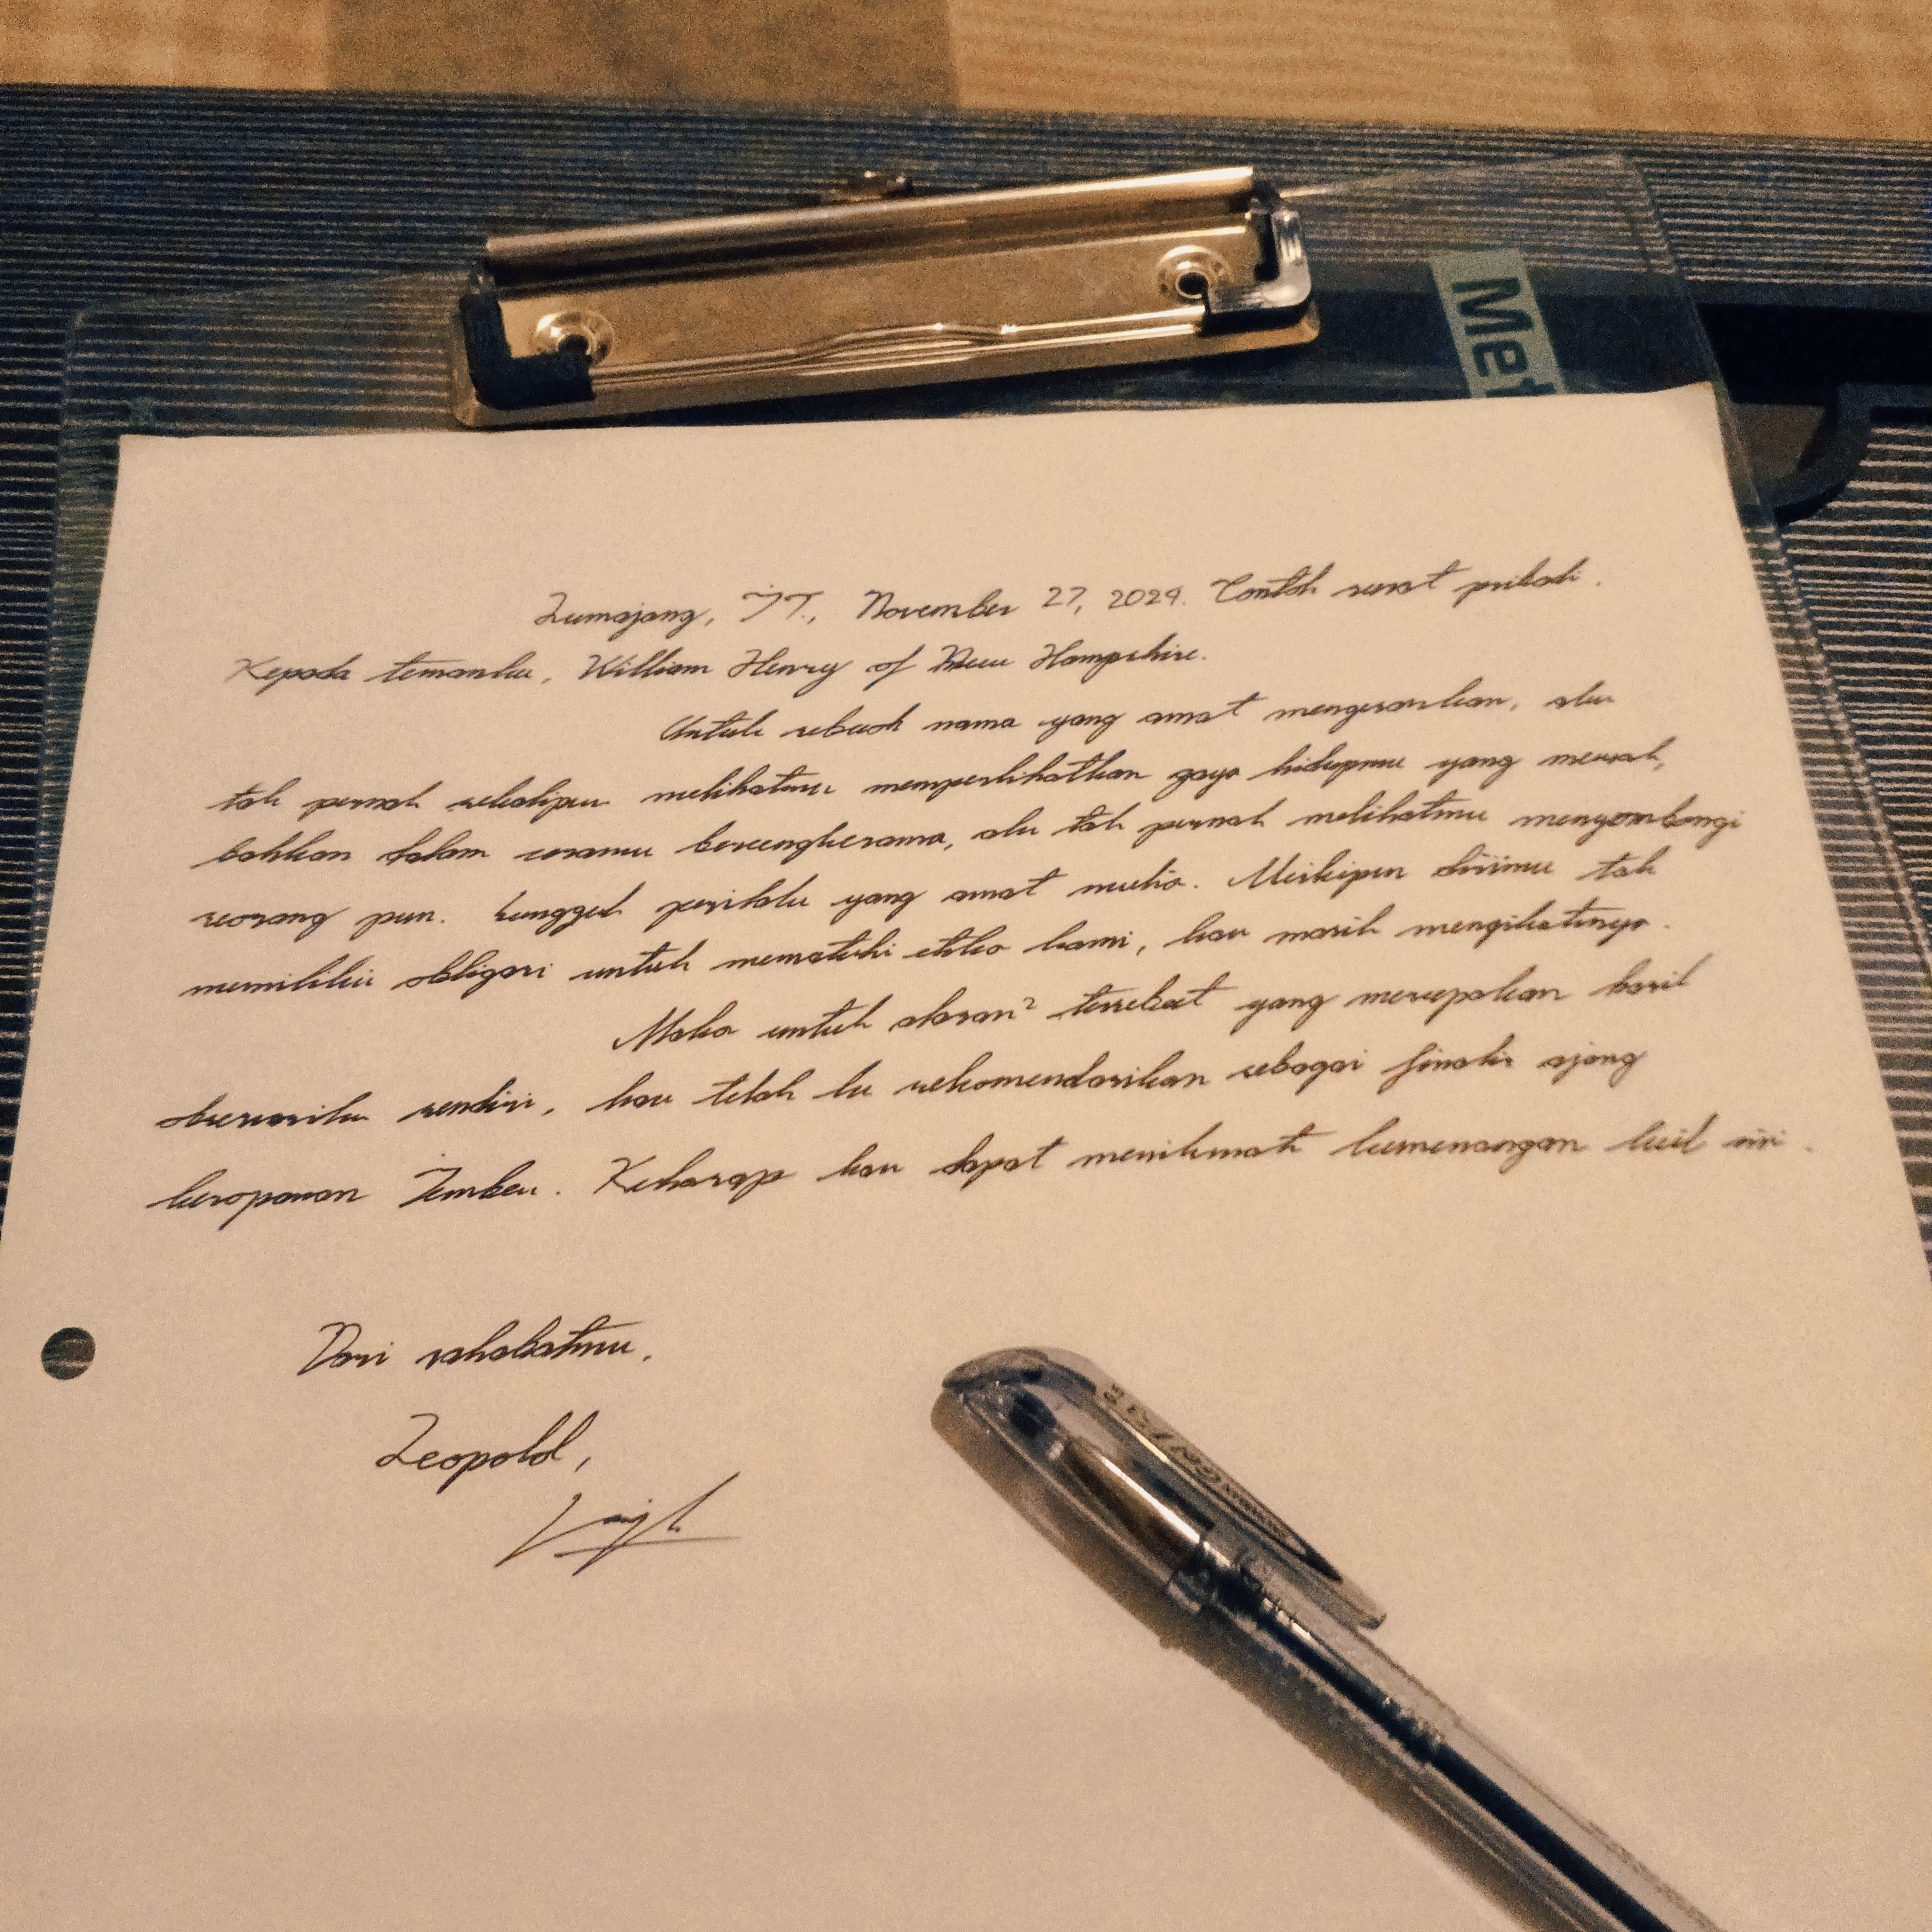 Met
Lumajang, JT., November 27, 2024. Contoh surat pribadi.
Kepada temanku, William Henry of New Hampshire.
Untuk sebuah nama yang amat mengesankan, aku
tak pernah sekalipun melihatmu memperlihatkan gaya hidupmu yang mewah,
bahkan dalam caramu bercengkerama, aku tak pernah melihatmu menyombongi
seorang pun. Sungguh perilaku yang amat mulia. Meskipun dirimu tak
memiliki obligasi untuk mematuhi etika kami, kau masih mengikutinya.
Maka untuk alasan² tersebut yang merupakan hasil
observasiku sendiri, kau telah ku rekomendasikan sebagai finalis ajang
kesopanan Jember. Kuharap kau dapat menikmati kemenangan kecil ini.
Dari sahabatmu,
Leopold,